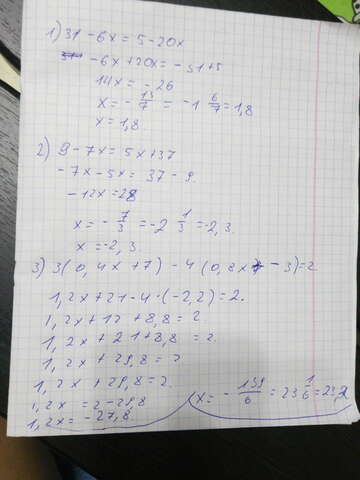 1) 31 - 6x = 5 - 20x
- 6x + 20x = - 31 + 5
14x = - 26
x = - 13/7 = - 1 6/7 = 1,8
x = 1,8
2) 9 - 7x = 5x + 37
- 7x - 5x = 37 - 9
- 12x = 28
x = - 7/3 = - 2 1/3 = -2,3.
x = -2,3.
3) 3(0,4x + 7) - 4(0,8x - 3) = 2
1,2x + 21 - 4 · (-2,2) = 2.
1,2x + 12 + 8,8 = 2
1,2x + 21 + 8,8 = 2
1,2x + 29,8 = 2
1,2x + 29,8 = 2.
1,2x = 2 - 29,8
1,2x = - 27,8.
x = - 139/6 = 23 1/6 =